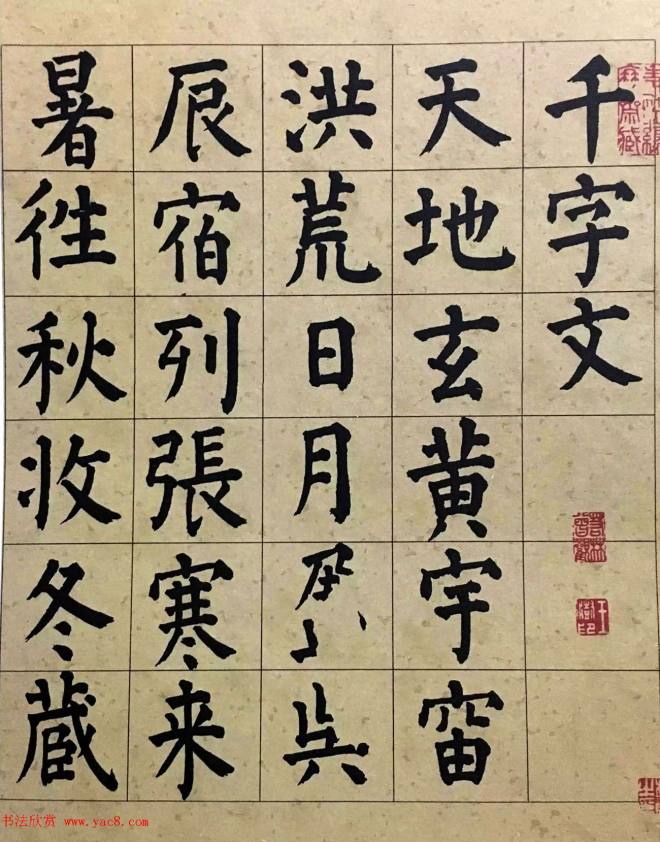 千字文
天地玄黄宇宙
洪荒日月
辰宿列張寒来
暑徃秋收冬蔵
书法欣赏 www.yac8.com